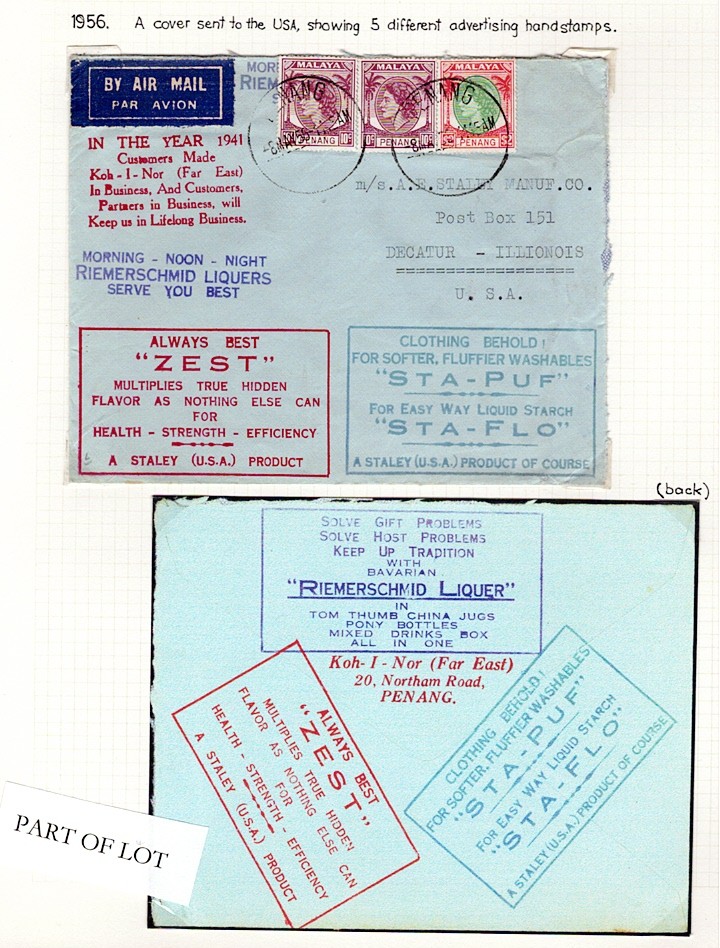 1956. A cover sent to the USA, showing 5 different advertising handstamps.
BY AIR MAIL
PAR AVION
MORN
RIEM
MALAYA
MALAYA
MALAYA
PENANG
PENANG
10c
PENANG
10c
PENANG
PENANG
IN THE YEAR 1941
Customers Made
Koh - I - Nor (Far East)
In Business, And Customers,
Partners in Business, will
Keep us in Lifelong Business.
m/s.A.E.STALEY MANUF.CO.
Post Box 151
DECATUR - ILLIONOIS
===================
U. S. A.
MORNING - NOON - NIGHT
RIEMERSCHMID LIQUERS
SERVE YOU BEST
ALWAYS BEST
"ZEST"
MULTIPLIES TRUE HIDDEN
FLAVOR AS NOTHING ELSE CAN
FOR
HEALTH - STRENGTH - EFFICIENCY
A STALEY (U.S.A.) PRODUCT
CLOTHING BEHOLD!
FOR SOFTER, FLUFFIER WASHABLES
"STA-PUF"
FOR EASY WAY LIQUID STARCH
"STA-FLO"
A STALEY (U.S.A.) PRODUCT OF COURSE
(back)
SOLVE GIFT PROBLEMS
SOLVE HOST PROBLEMS
KEEP UP TRADITION
WITH
BAVARIAN
"RIEMERSCHMID LIQUER"
IN
TOM THUMB CHINA JUGS
PONY BOTTLES
MIXED DRINKS BOX
ALL IN ONE
Koh - I - Nor (Far East)
20, Northam Road,
PENANG.
ALWAYS BEST
"ZEST"
MULTIPLIES TRUE HIDDEN
FLAVOR AS NOTHING ELSE CAN
FOR
HEALTH - STRENGTH - EFFICIENCY
A STALEY (U.S.A.) PRODUCT
CLOTHING BEHOLD!
FOR SOFTER, FLUFFIER WASHABLES
"STA-PUF"
FOR EASY WAY LIQUID STARCH
"STA-FLO"
A STALEY (U.S.A.) PRODUCT OF COURSE
PART OF LOT